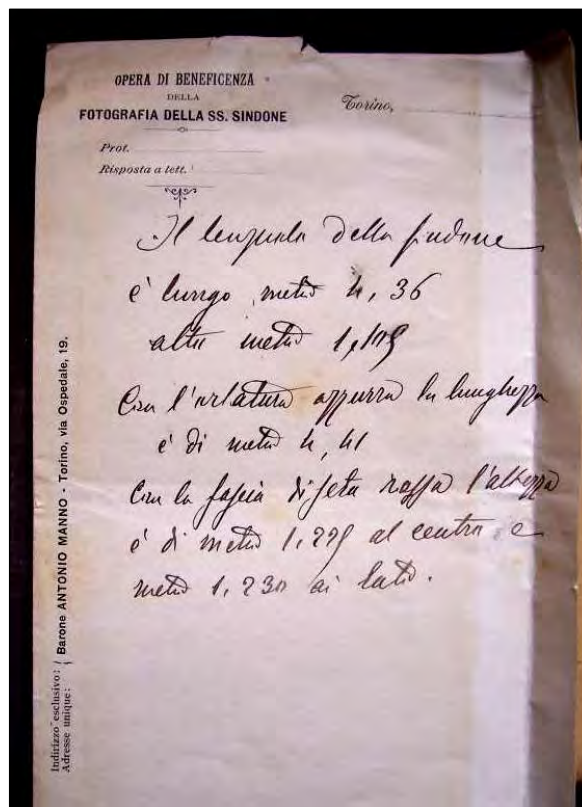 OPERA DI BENEFICENZA
DELLA
FOTOGRAFIA DELLA SS. SINDONE
Torino,
Prot.
Risposta a lett.
Il lenzuolo della sindone
è lungo metri 4, 36
alto metri
Con l'orlatura azzurra la lunghezza
è di metri 4, 41
Con la fascia di seta rossa l'altezza
è di metri 1.225 al centro e
metri 1.230 ai lati.
Indirizzo esclusivo:
Adresse unique:
Barone ANTONIO MANNO - Torino, via Ospedale, 19.